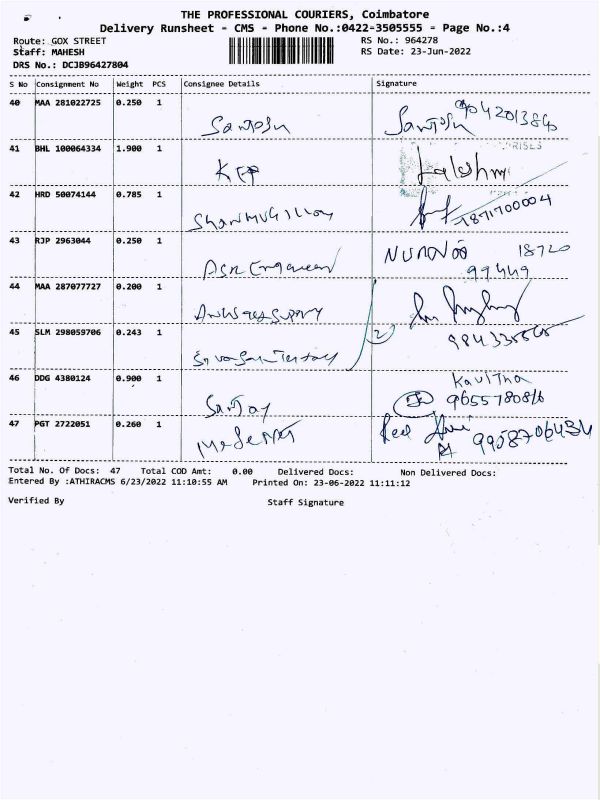 THE PROFESSIONAL COURIERS, Coimbatore
Delivery Runsheet - CMS - Phone No.:0422-3505555 - Page No.:4
Route: GOX STREET RS No.: 964278
Staff: MAHESH RS Date: 23-Jun-2022
DRS No.: DCJB96427804
S No Consignment No Weight PCS Consignee Details Signature
40 MAA 281022725 0.250 1
Santosh Santosh 9042013840
41 BHL 100064334 1.900 1
KEP Lakshmi
42 HRD 50074144 0.785 1
7871700004
43 RJP 2963044 0.250 1
18720
99449
44 MAA 287077727 0.200 1
45 SLM 298059706 0.243 1
2
46 DDG 4380124 0.900 1 Kavitha
Sanjay
47 PGT 2722051 0.260 1
Total No. Of Docs: 47 Total COD Amt: 0.00 Delivered Docs: Non Delivered Docs:
Entered By :ATHIRACMS 6/23/2022 11:10:55 AM Printed On: 23-06-2022 11:11:12
Verified By Staff Signature